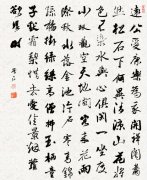 遠公愛康樂為我開禪關
蕭然松石下何異清涼山花將
色不染水與心俱閑一坐度
小劫觀空天地間客來花雨
際秋水落金池片石寒青錦
疏楊掛綠絲高僧拂玉柄童
子獻霜梨惜去愛佳景煙蘿
欲暝時